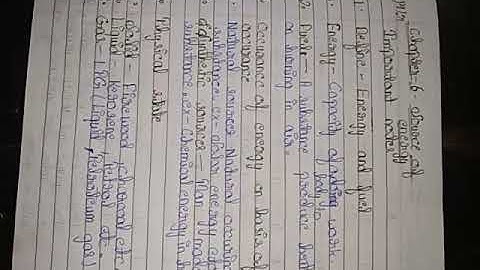 Chapter-6 source of
energy
Important notes
1. Define - Energy and fuel
· Energy - Capacity of doing work.
body
2. Fuel - A substance produce heat
on burning in air.
· Occurance of energy on basis of
occurance
· Natural sources Natural
substance. ex- solar energy etc
· Synthetic sources - Man made
substance. ex- Chemical energy in
Physical state
· Solid - Firewood, charcoal etc.
· Liquid - Kerosene, petrol etc.
· Gas - LPG (liquid petroleum gas)